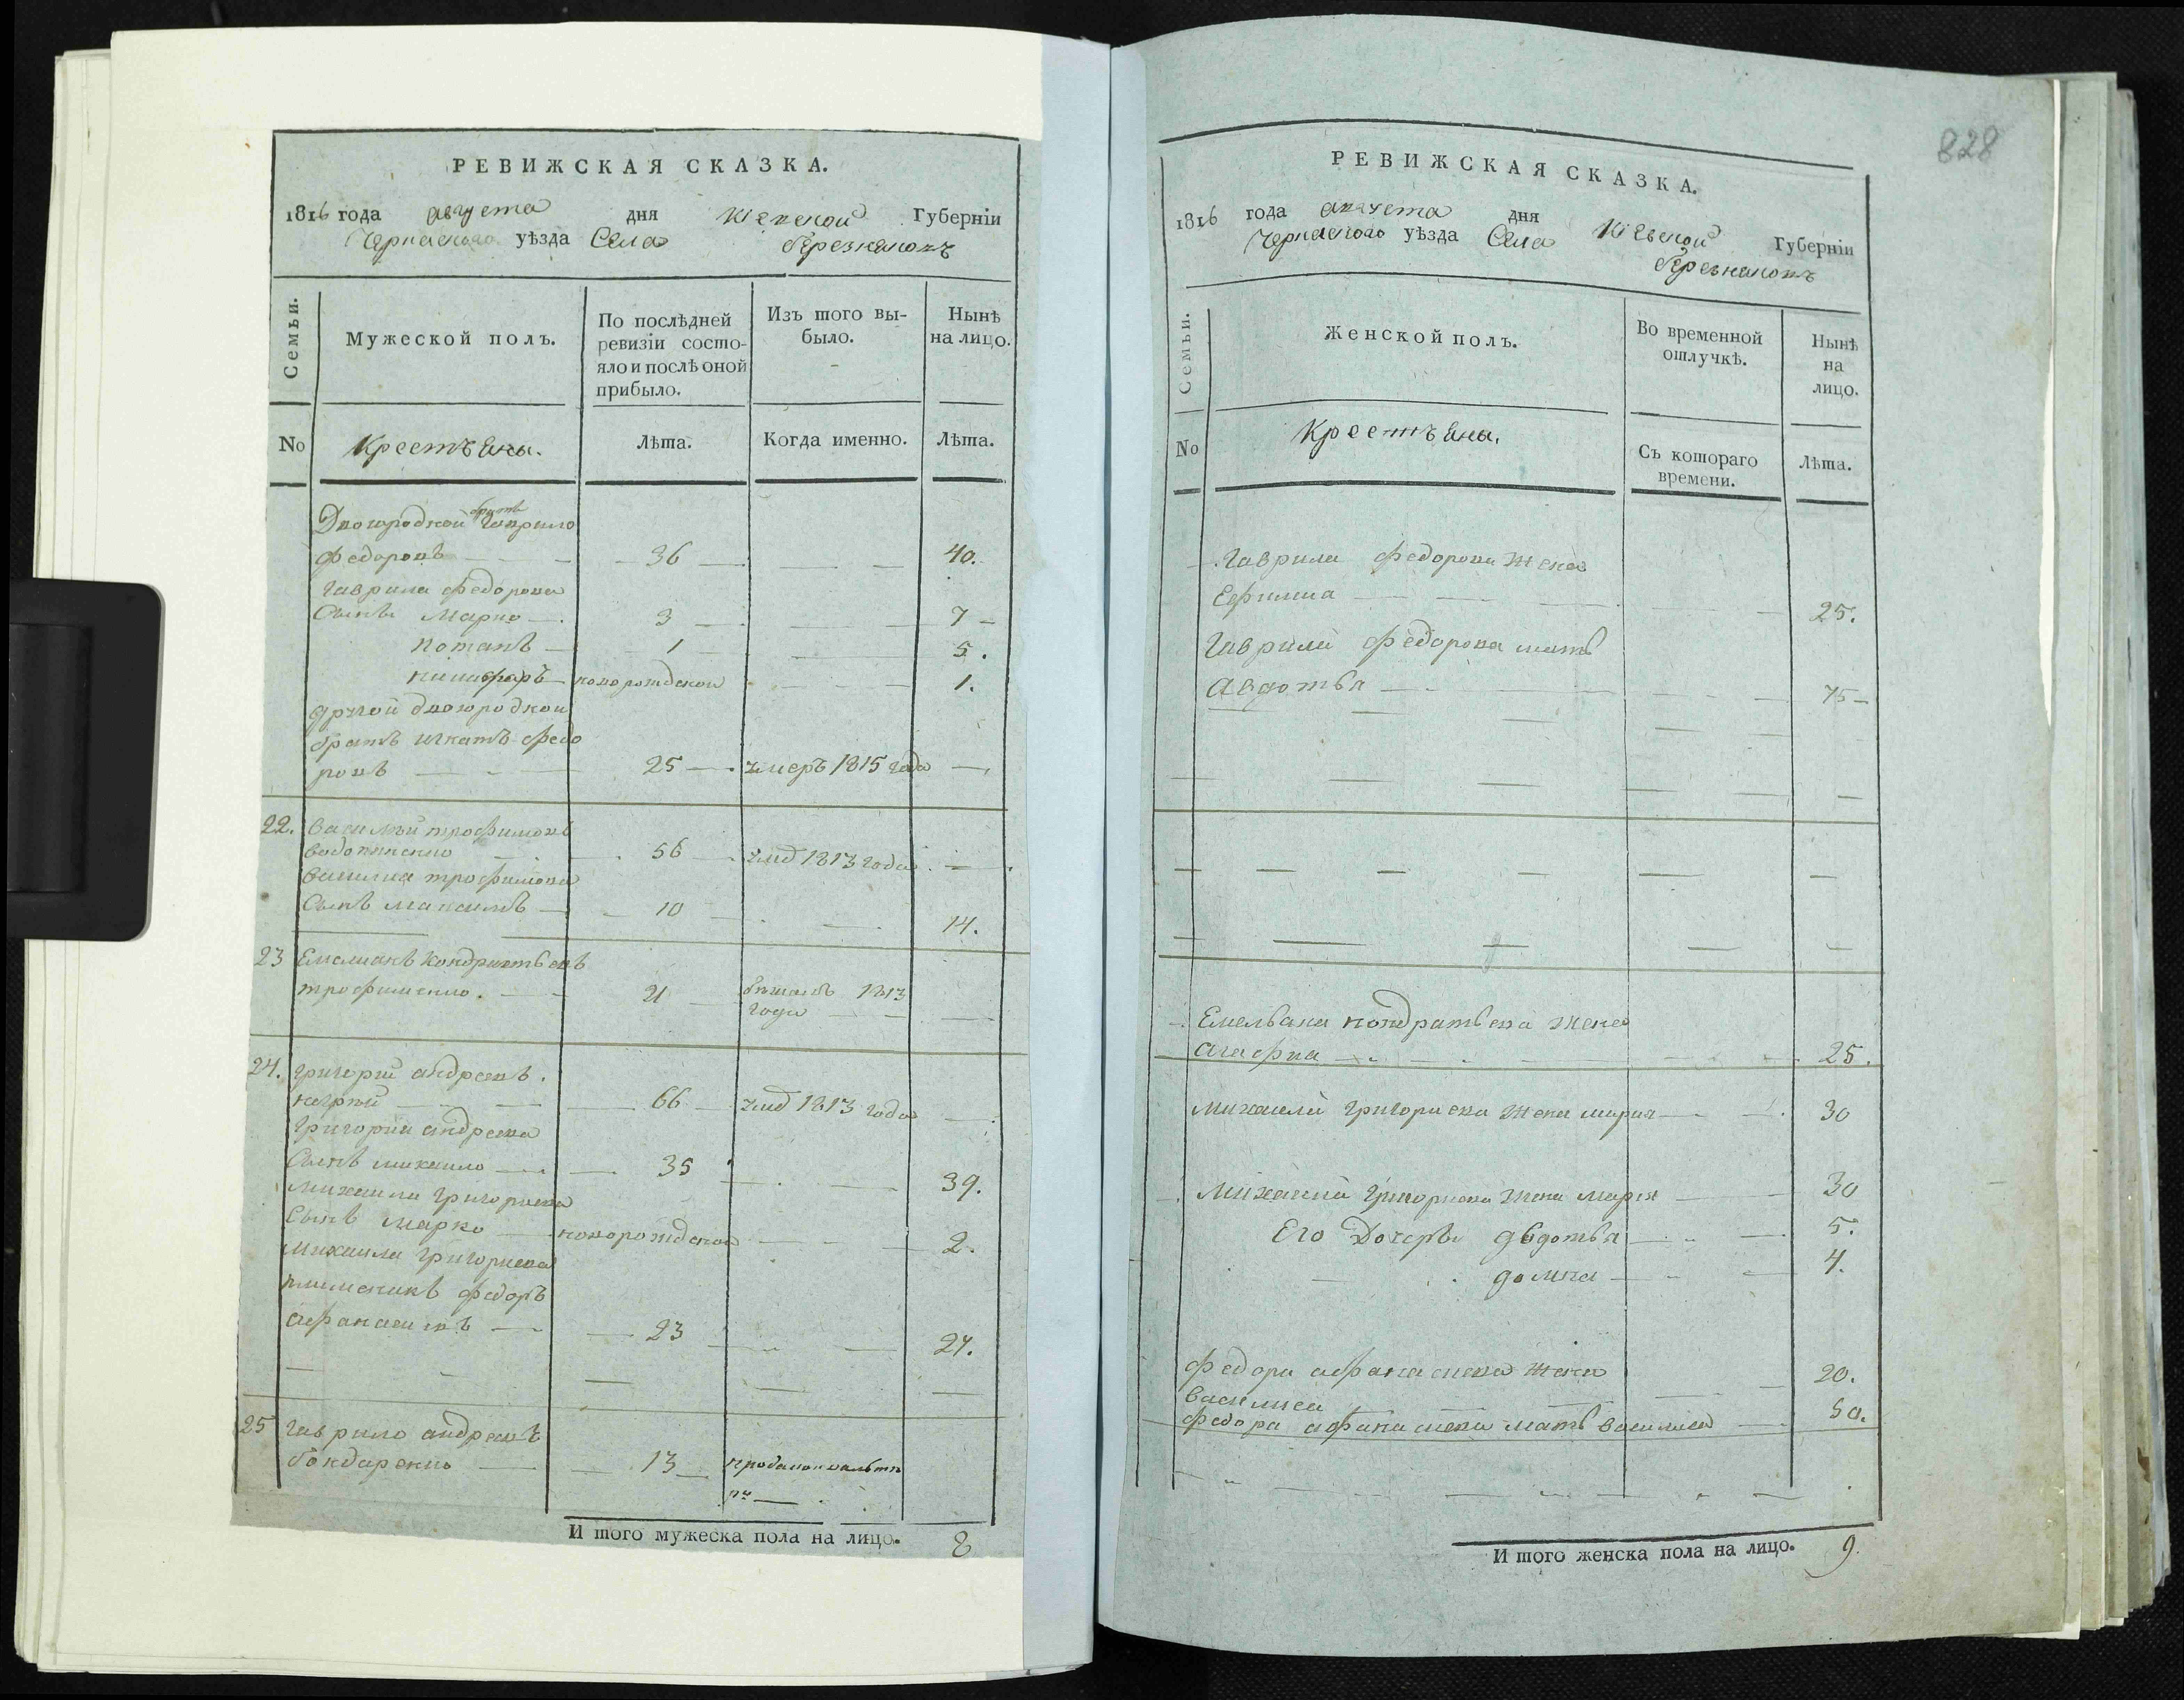 РЕВИЖСКАЯ СКАЗКА.
1816 года августа дня Кіевской Губерніи
Черкаского уѣзда Села Березняковъ
Семьи.
Мужеской полъ.
По послѣдней ревизіи состояло и послѣ оной прибыло.
Изъ того выбыло.
Нынѣ на лицо.
No
Крестьяны.
Лѣта.
Когда именно.
Лѣта.
Двоюродной братъ Гаврило
Федоровъ 36 40.
Гаврила Федорова
Сынъ Марко 3 7
Потапъ 1 5.
новорожденой 1.
другой двоюродной
братъ Игнатъ Федо
ровъ 25 умеръ 1815 года
22. Василий трофимовъ
56 умер 1813 года
Василия трофимова
Сынъ Максимъ 10 14.
23 Емелианъ Кондратьевъ
трофименко. 21 бежалъ 1813
года
24. Григорий андреевъ.
66 умер 1813 года
Григория андреева
Сынъ михаило 35 39.
Михаила Григориева
Сынъ Марко новорожденой 2.
Михаила Григориева
племеникъ федоръ
афанасиевъ 23 27.
25 Гаврило андреевъ
бондаренко 13
И того мужеска пола на лицо. 8
828
РЕВИЖСКАЯ СКАЗКА.
1816 года августа дня Кіевской Губерніи
Черкаского уѣзда Села Березняковъ
Семьи.
Женской полъ.
Во временной отлучкѣ.
Нынѣ на лицо.
No
Крестьяны.
Съ котораго времени.
Лѣта.
Гаврила Федорова жена
Ефимиа 25.
Гаврила Федорова мать
Авдотья 75
Емельяна кондратьева жена
Агафиа 25.
михаила григориева жена мария 30
Михаила Григориева жена Мария 30
Его Дочери Авдотья 5.
домна 4.
Федора афанасиева жена 20.
Василиса
Федора афанасиева мать Василиса 50.
И того женска пола на лицо. 9.